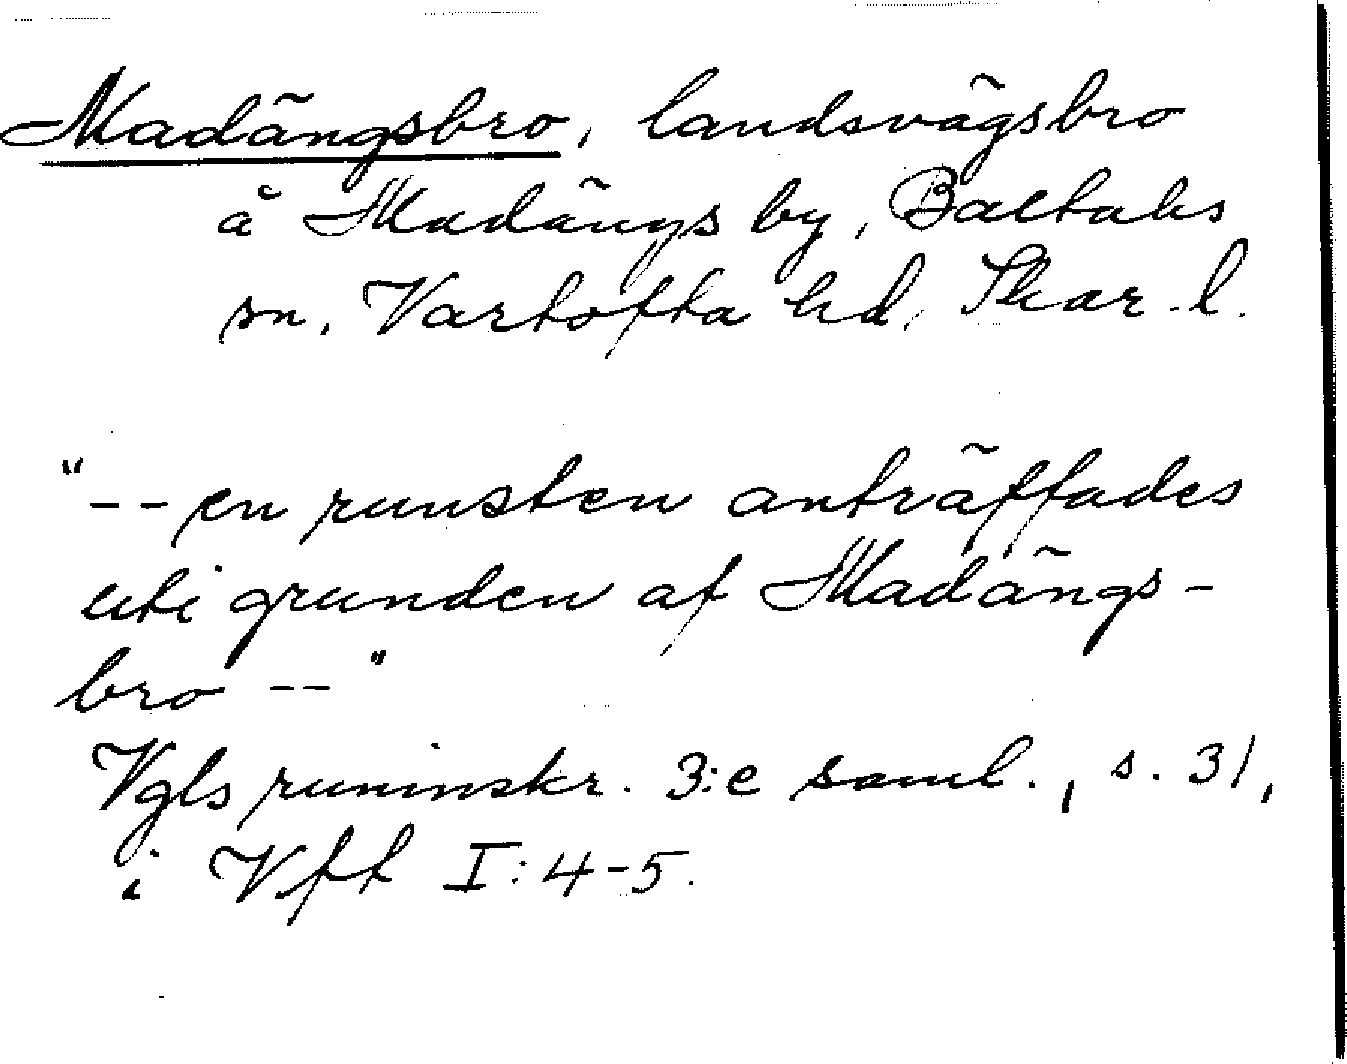 Madängsbro, landsvägsbro
å Madängs by, Baltaks
sn, Vartofta hd, Skar. l.
"-- en runsten anträffades
uti grunden af Madängs-
bro --"
Vgls runinskr. 3:e saml., s. 31,
i Vft I: 4-5.